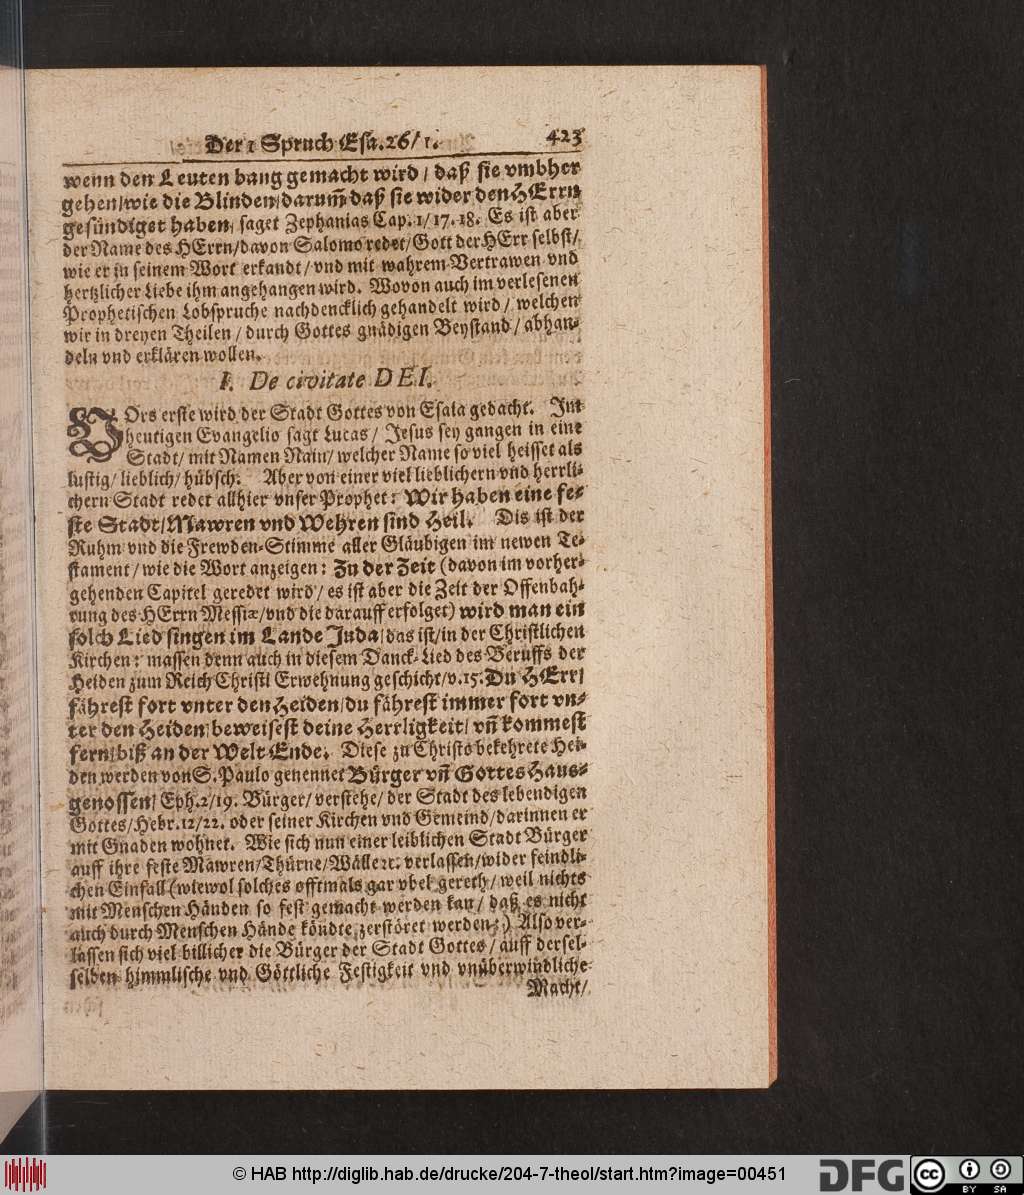 Der 1 Spruch Esa. 26/ 1. 423
wenn den Leuten bang gemacht wird / daß sie vmbher
gehen/wie die Blinden/darum̃ daß sie wider den HErrn
gesündiget haben/ saget Zephanias Cap. 1/ 17. 18. Es ist aber
der Name des HErrn/davon Salomo redet/Gott der HErr selbst/
wie er in seinem Wort erkandt / vnd mit wahrem Vertrawen vnd
hertzlicher Liebe ihm angehangen wird. Wovon auch im verlesenen
Prophetischen Lobspruche nachdencklich gehandelt wird / welchen
wir in dreyen Theilen / durch Gottes gnädigen Beystand / abhan-
deln vnd erklären wollen.
I. De civitate DEI.
VOrs erste wird der Stadt Gottes von Esaia gedacht. Im
heutigen Evangelio sagt Lucas / Jesus sey gangen in eine
Stadt/ mit Namen Nain/ welcher Name so viel heisset als
lustig/ lieblich/ hübsch. Aber von einer viel lieblichern vnd herrli-
chern Stadt redet allhier vnser Prophet: Wir haben eine fe-
ste Stadt/Mawren vnd Wehren sind Heil. Dis ist der
Ruhm vnd die Frewden-Stimme aller Gläubigen im newen Te-
stament / wie die Wort anzeigen: Zu der Zeit (davon im vorher-
gehenden Capitel geredet wird / es ist aber die Zeit der Offenbah-
rung des HErrn Messiæ/vnd die darauff erfolget) wird man ein
solch Lied singen im Lande Juda/das ist/in der Christlichen
Kirchen: massen denn auch in diesem Danck-Lied des Beruffs der
Heiden zum Reich Christi Erwehnung geschicht/v.15. Du HErr/
fährest fort vnter den Heiden/du fährest immer fort vn-
ter den Heiden/beweisest deine Herrligkeit/ vñ kommest
fern/biß an der Welt Ende. Diese zu Christo bekehrete Hei-
den werden von S. Paulo genennet Bürger vñ Gottes Haus-
genossen/ Eph.2/19. Bürger/ verstehe/ der Stadt des lebendigen
Gottes/Hebr.12/22. oder seiner Kirchen vnd Gemeind/darinnen er
mit Gnaden wohnet. Wie sich nun einer leiblichen Stadt Bürger
auff ihre feste Mawren/Thürne/Wälle ꝛc. verlassen/wider feindli-
chen Einfall (wiewol solches offtmals gar vbel gereth/ weil nichts
mit Menschen Händen so fest gemacht werden kan / daß es nicht
auch durch Menschen Hände köndte zerstöret werden;) Also ver-
lassen sich viel billicher die Bürger der Stadt Gottes / auff dersel-
selben himmlische vnd Göttliche Festigkeit vnd vnüberwindliche
Macht/
© HAB http://diglib.hab.de/drucke/204-7-theol/start.htm?image=00451
DFG
cc BY SA